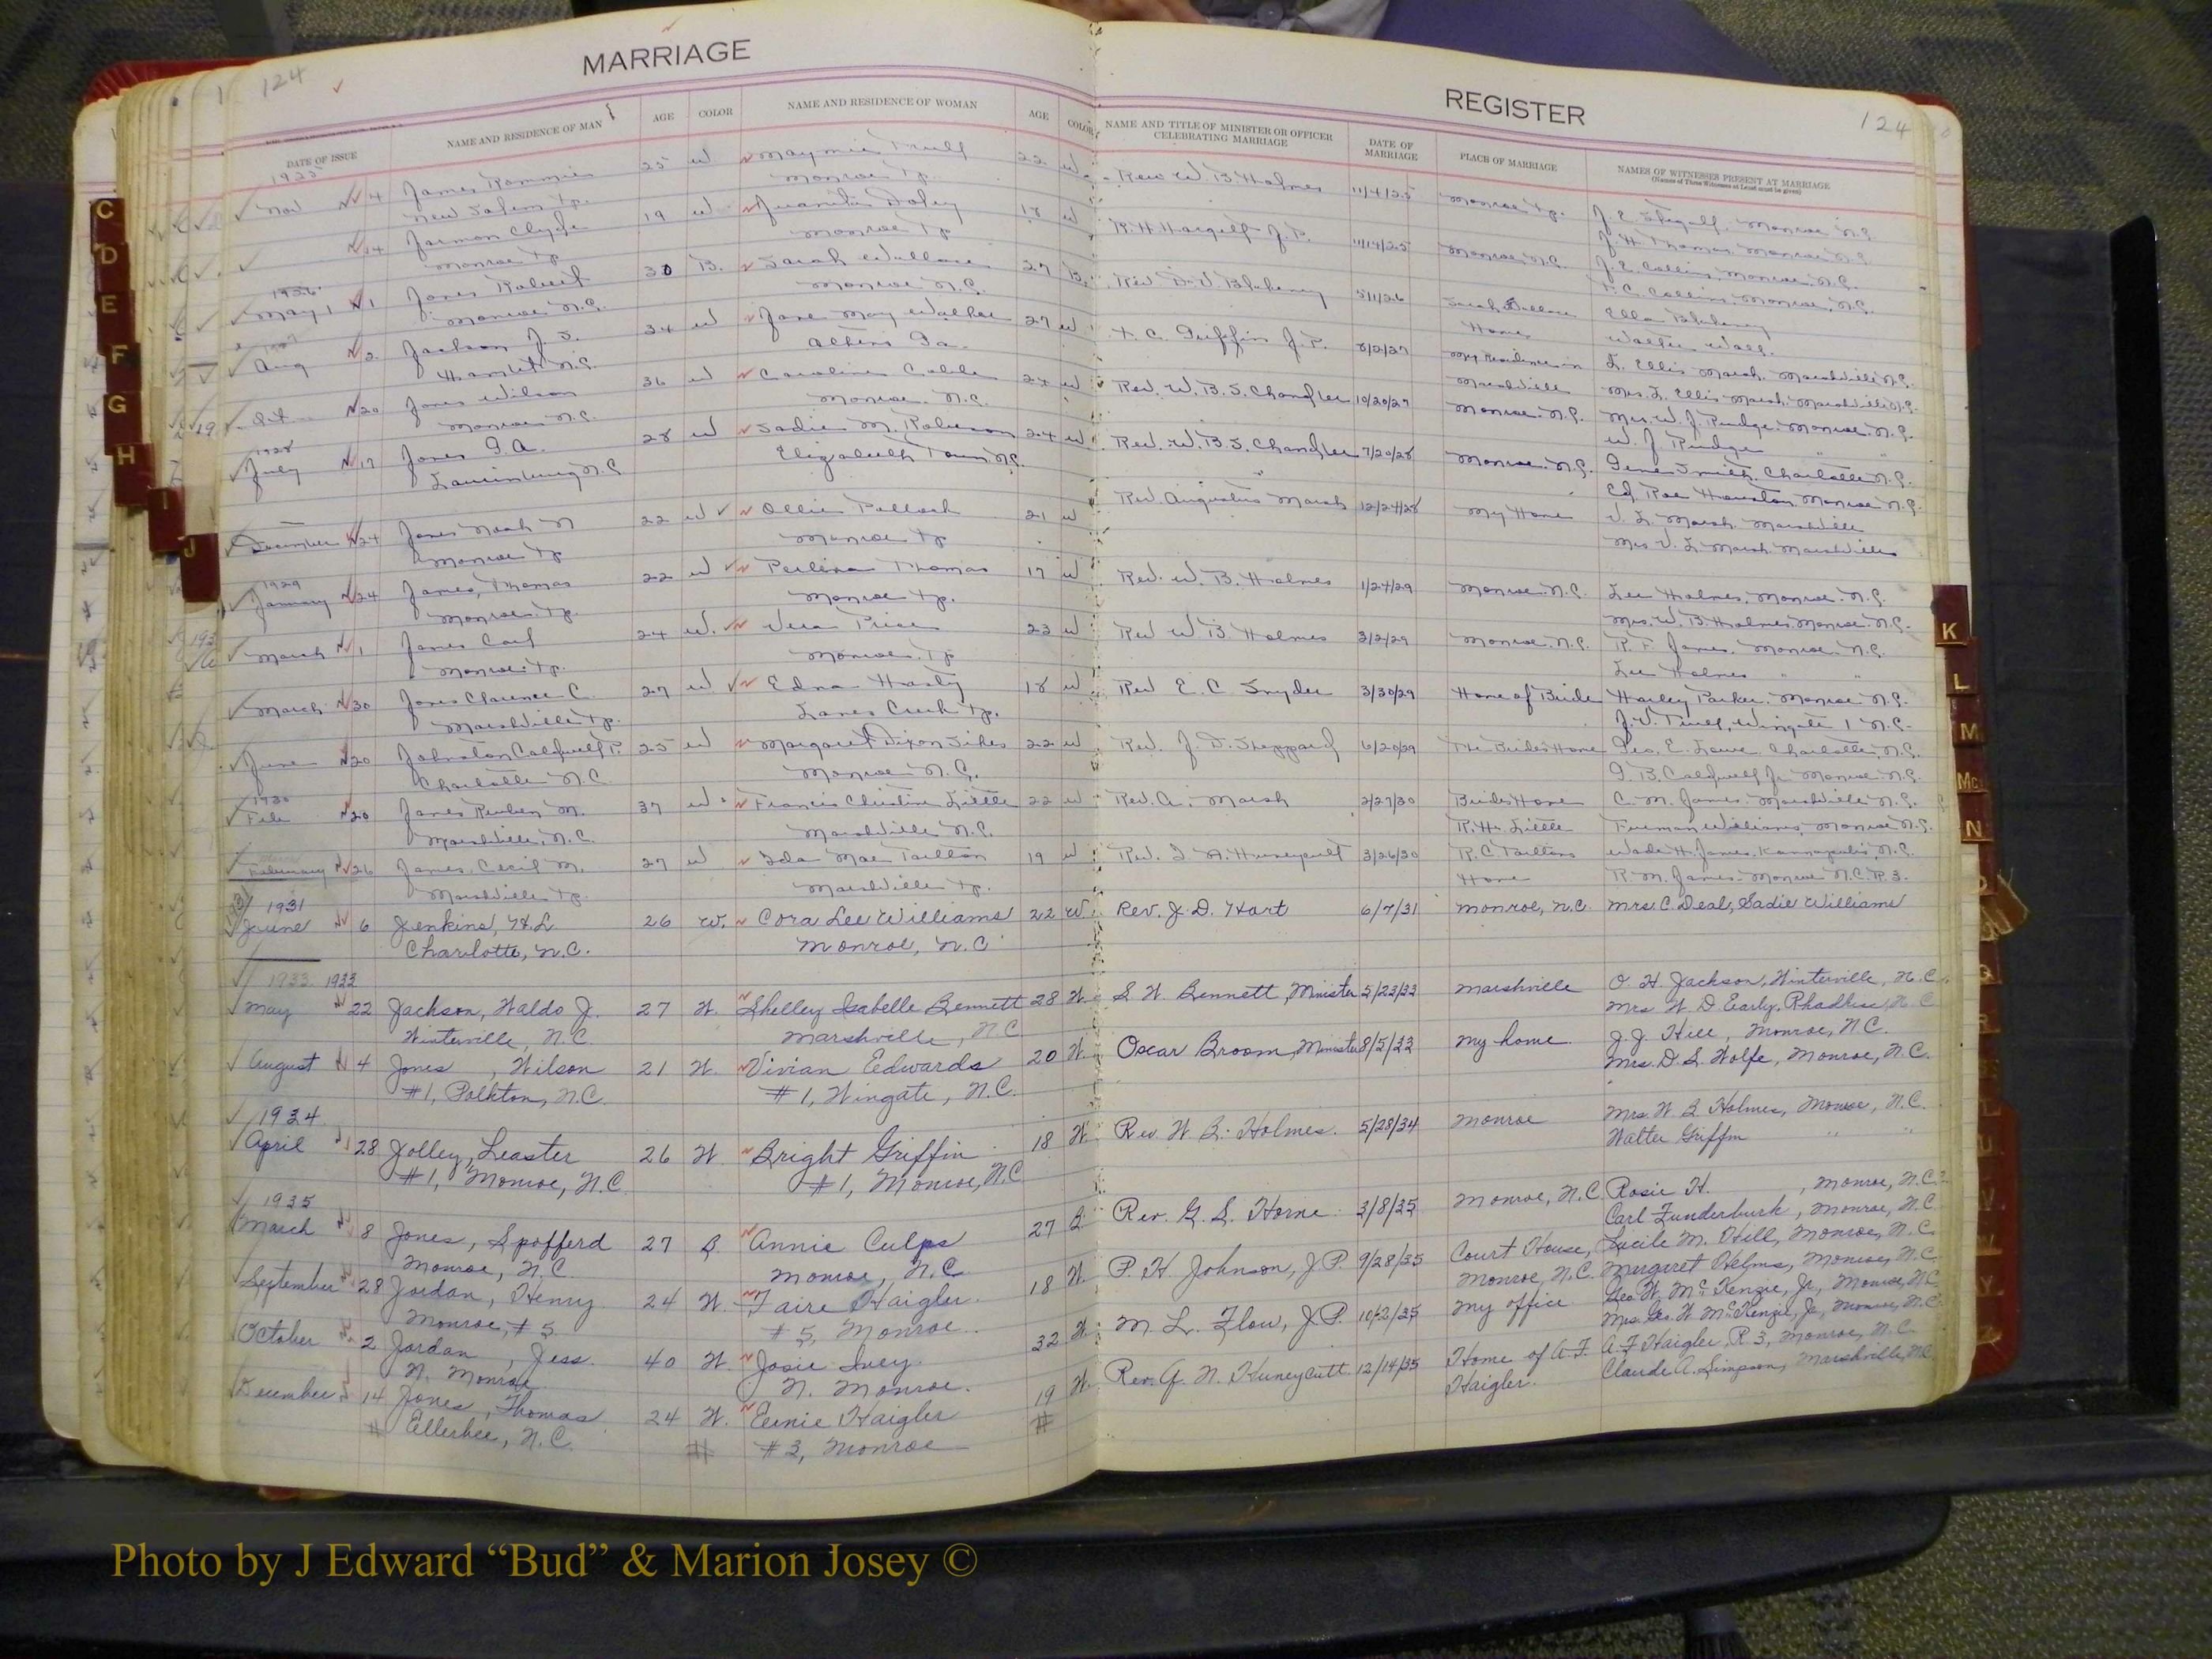 124
MARRIAGE
REGISTER
124
DATE OF ISSUE
NAME AND RESIDENCE OF MAN
AGE
COLOR
NAME AND RESIDENCE OF WOMAN
AGE
COLOR
NAME AND TITLE OF MINISTER OR OFFICER
CELEBRATING MARRIAGE
DATE OF
MARRIAGE
PLACE OF MARRIAGE
NAMES OF WITNESSES PRESENT AT MARRIAGE
(Names of Three Witnesses at Least must be given)
1925
Nov 4 James Rommie 25 W Maymie Trull 22 W Rev W. B. Holmes 11/4/25 Monroe Tp. J. E. Stegall, Monroe N.C.
New Salem Tp. Monroe Tp. J. H. Thomas Monroe N.C.
14 Jarmon Clyde 19 W 18 W R. H. Hargett J. P. 11/14/25 Monroe N.C. J. E. Collins Monroe N.C.
Monroe Tp Monroe Tp Collins Monroe, N.C.
1926
May 1 1 Jones Robert 30 B. Sarah Wallace 27 B. Rev. Blakeney 5/1/26 Sarah Wallace Ella Blakeney
Monroe N.C. Monroe N.C. Home Walter Wall.
1927
Aug 2 Jackson J. S. 34 W Jane May Walker 27 W C. Griffin J. P. 8/2/27 My Residence in L. Ellis Marsh Marshville N.C.
Hamlet N.C. Athens Ga. Marshville Mrs. L. Ellis Marsh Marshville N.C.
20 Jones Wilson 36 W Caroline 24 W Rev. W. B. S. Chandler 10/20/27 Monroe N.C. Mrs. W. J. Rudge Monroe N.C.
Monroe N.C. Monroe N.C. W. J. Rudge " "
1928
July 17 Jones G. A. 28 W Sadie M. Robeson 24 W Rev. W. B. S. Chandler 7/20/28 Monroe N.C. Gene Smith, Charlotte N.C.
Laurinburg N.C. Elizabeth Town N.C. Ed Roe Houston Monroe N.C.
December 24 Jones Noah N 22 W Ollie Pollock 21 W Rev. Augustus Marsh 12/24/28 My Home V. L. Marsh Marshville
Monroe Tp Monroe Tp Mrs V. L. Marsh Marshville
1929
January 24 James, Thomas 22 W Perlina Thomas 17 W Rev. W. B. Holmes 1/24/29 Monroe N.C. Lee Holmes, Monroe N.C.
Monroe Tp. Monroe Tp. Mrs. W. B. Holmes Monroe N.C.
March 1 James Carl 24 W. Vera Price 23 W Rev W. B. Holmes 3/2/29 Monroe, N.C. R. F. James Monroe N.C.
Monroe Tp. Monroe Tp Lee Holmes " "
March 30 Jones Clarence C. 27 W Edna Hasty 18 W Rev E. C. Snyder 3/30/29 Home of Bride Harley Parker, Monroe N.C.
Marshville Tp. Lanes Creek Tp. J. V. Trull, Wingate 1 N.C.
June 20 Johnston Caldwell P. 25 W Margaret Dixon Sikes 22 W Rev. J. D. Sheppard 6/20/29 The Brides Home Geo. E. Lowe, Charlotte, N.C.
Charlotte N.C. Monroe N.C. G. B. Caldwell Jr Monroe N.C.
1930
Feb 20 James Reuben M. 37 W Francis Christine Little 22 W Rev. A. Marsh 2/27/30 Brides Home C. M. James Marshville N.C.
Marshville, N.C. Marshville N.C. R. H. Little Furman Williams, Monroe N.C.
February 26 James, Cecil M. 27 W Ida Mae Tarlton 19 W Rev. Huneycutt 3/26/30 R. C. Tarltons Wade H. James, Kannapolis, N.C.
Marshville Tp. Marshville Tp. Home R. M. James Monroe N.C. R. 3.
1931
June 6 Jenkins, H. L 26 W. Cora Lee Williams 22 W. Rev. J. D. Hart 6/7/31 Monroe, N.C. Mrs. C. Deal, Sadie Williams
Charlotte, N.C. Monroe, N.C
1933 1933
May 22 Jackson, Waldo J. 27 W. Shelley Isabelle Bennett 28 W. S W Bennett, Minister 5/23/33 Marshville O. H. Jackson, Winterville, N.C.
Winterville, N.C. Marshville, N.C Mrs W. D. Early, N.C
August 4 Jones, Wilson 21 W. Vivian Edwards 20 W. Oscar Broom, Minister 8/5/33 My home J. J. Hill, Monroe, N.C.
#1, Polkton, N.C. #1, Wingate, N.C. Mrs. D. S. Wolfe, Monroe, N.C.
1934
April 28 Jolley, Leaster 26 W. Bright Griffin 18 W Rev W. B. Holmes. 5/28/34 Monroe Mrs. W B Holmes, Monroe, N.C.
#1, Monroe, N.C #1, Monroe, N.C Walter Griffin " "
1935
March 8 Jones, Spofferd 27 B. Annie Culps 27 B. Rev. G. S. Horne 3/8/35 Monroe, N.C. Rosie H. , Monroe, N.C.
Monroe, N.C. Monroe, N.C Carl Funderburk, Monroe, N.C
September 28 Jordan, Henry 24 W. Faire Haigler. 18 W. P. H. Johnson, J.P. 9/28/35 Court House, Lucile M. Hill, Monroe, N.C
Monroe, #5 #5, Monroe. Monroe, N.C. Margaret Helms, Monroe, N.C.
October 2 Jordan, Jess. 40 W. Josie Ivey 32 W. M. L. Flow, J.P. 10/2/35 My office Geo. W. McKenzie, Jr., Monroe, N.C
N. Monroe N. Monroe. Mrs. Geo. W McKenzie, Jr., Monroe, N.C.
December 14 Jones, Thomas 24 W. Eernie Haigler 19 W. Rev. A. N. Huneycutt 12/14/35 Home of A. F. A. F Haigler, R 3, Monroe, N.C
Ellerbee, N.C. #3, Monroe Haigler. Claude A. Simpson, Marshville, N.C
C
D
E
F
G
H
I
J
K
L
M
Mc
N
Photo by J Edward “Bud” & Marion Josey ©